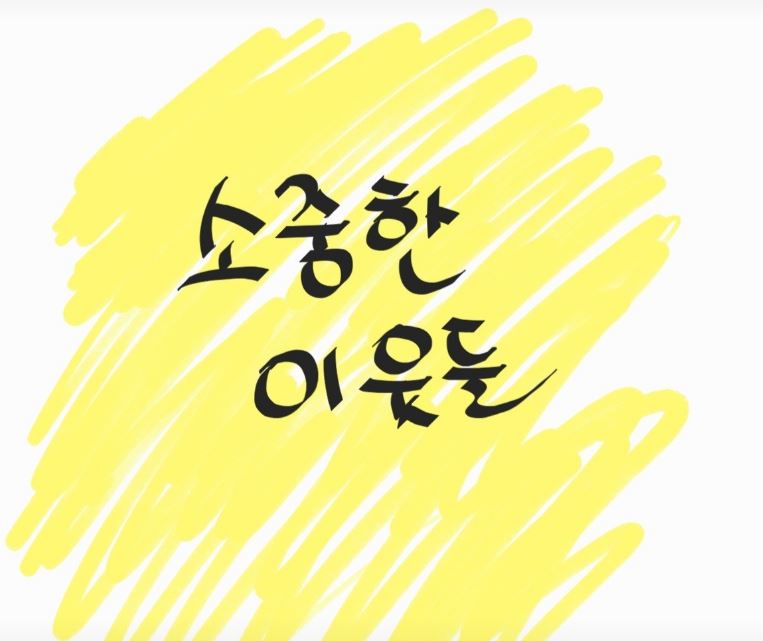 소중한
이웃들